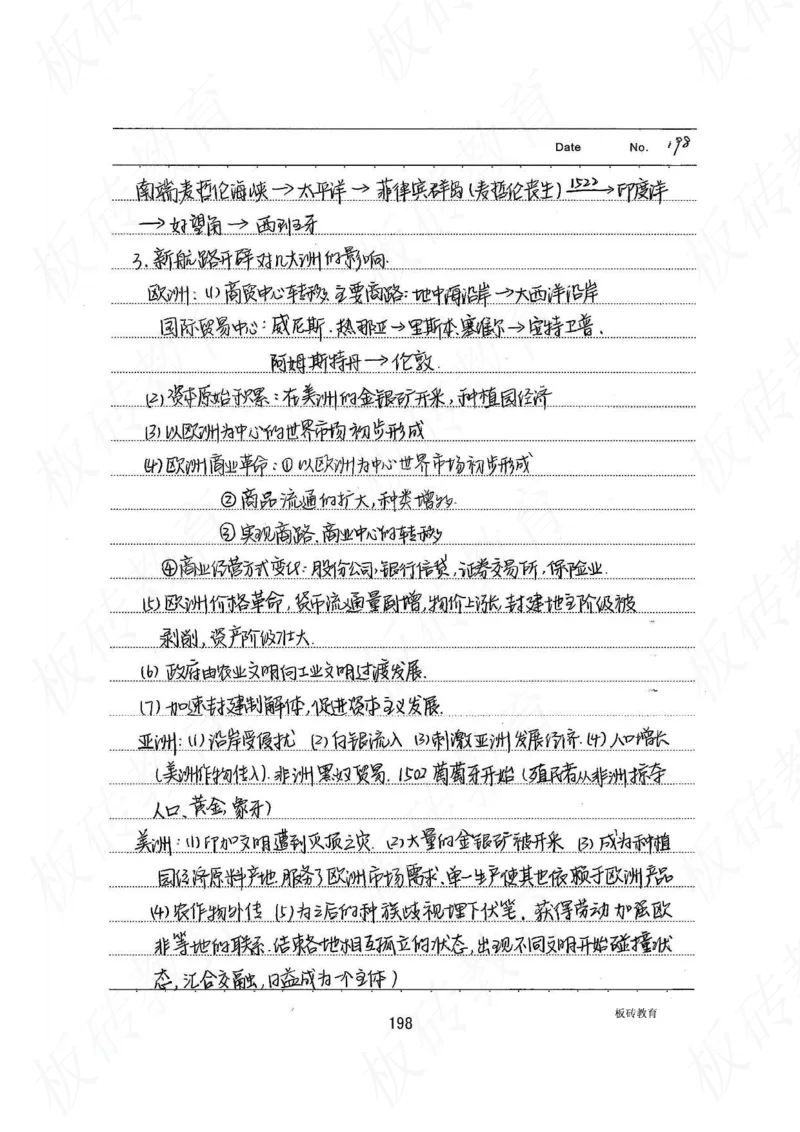 Date No. 198
南端麦哲伦海峡→太平洋→菲律宾群岛(麦哲伦丧生)1522→印度洋
→好望角→西班牙
3.新航路开辟对几大洲的影响.
欧洲:(1)商贸中心转移.主要商路:地中海沿岸→大西洋沿岸
国际贸易中心:威尼斯.热那亚→里斯本.塞维尔→安特卫普、
阿姆斯特丹→伦敦.
(2)资本原始积累:在美洲的金银矿开采,种植园经济
(3)以欧洲为中心的世界市场初步形成
(4)欧洲商业革命:①以欧洲为中心世界市场初步形成
②商品流通的扩大,种类增多.
③实现商路、商业中心的转移
④商业经营方式变化:股份公司,银行信贷,证券交易所,保险业.
(5)欧洲价格革命,货币流通量剧增,物价上涨,封建地主阶级被
剥削,资产阶级壮大.
(6)政府由农业文明向工业文明过渡发展.
(7)加速封建制解体,促进资本主义发展.
亚洲:(1)沿岸受侵扰 (2)白银流入 (3)刺激亚洲发展经济.(4)人口增长
(美洲作物传入).非洲黑奴贸易.1502葡萄牙开始(殖民者从非洲掠夺
人口、黄金,象牙)
美洲:(1)印加文明遭到灭顶之灾.(2)大量的金银矿被开采 (3)成为种植
园经济原料产地.服务了欧洲市场需求、单一生产使其也依赖于欧洲产品
(4)农作物外传 (5)为之后的种族歧视埋下伏笔.获得劳动加强欧
非等地的联系.结束各地相互孤立的状态,出现不同文明开始碰撞状
态,汇合交融,日益成为一个主体)
198
板砖教育